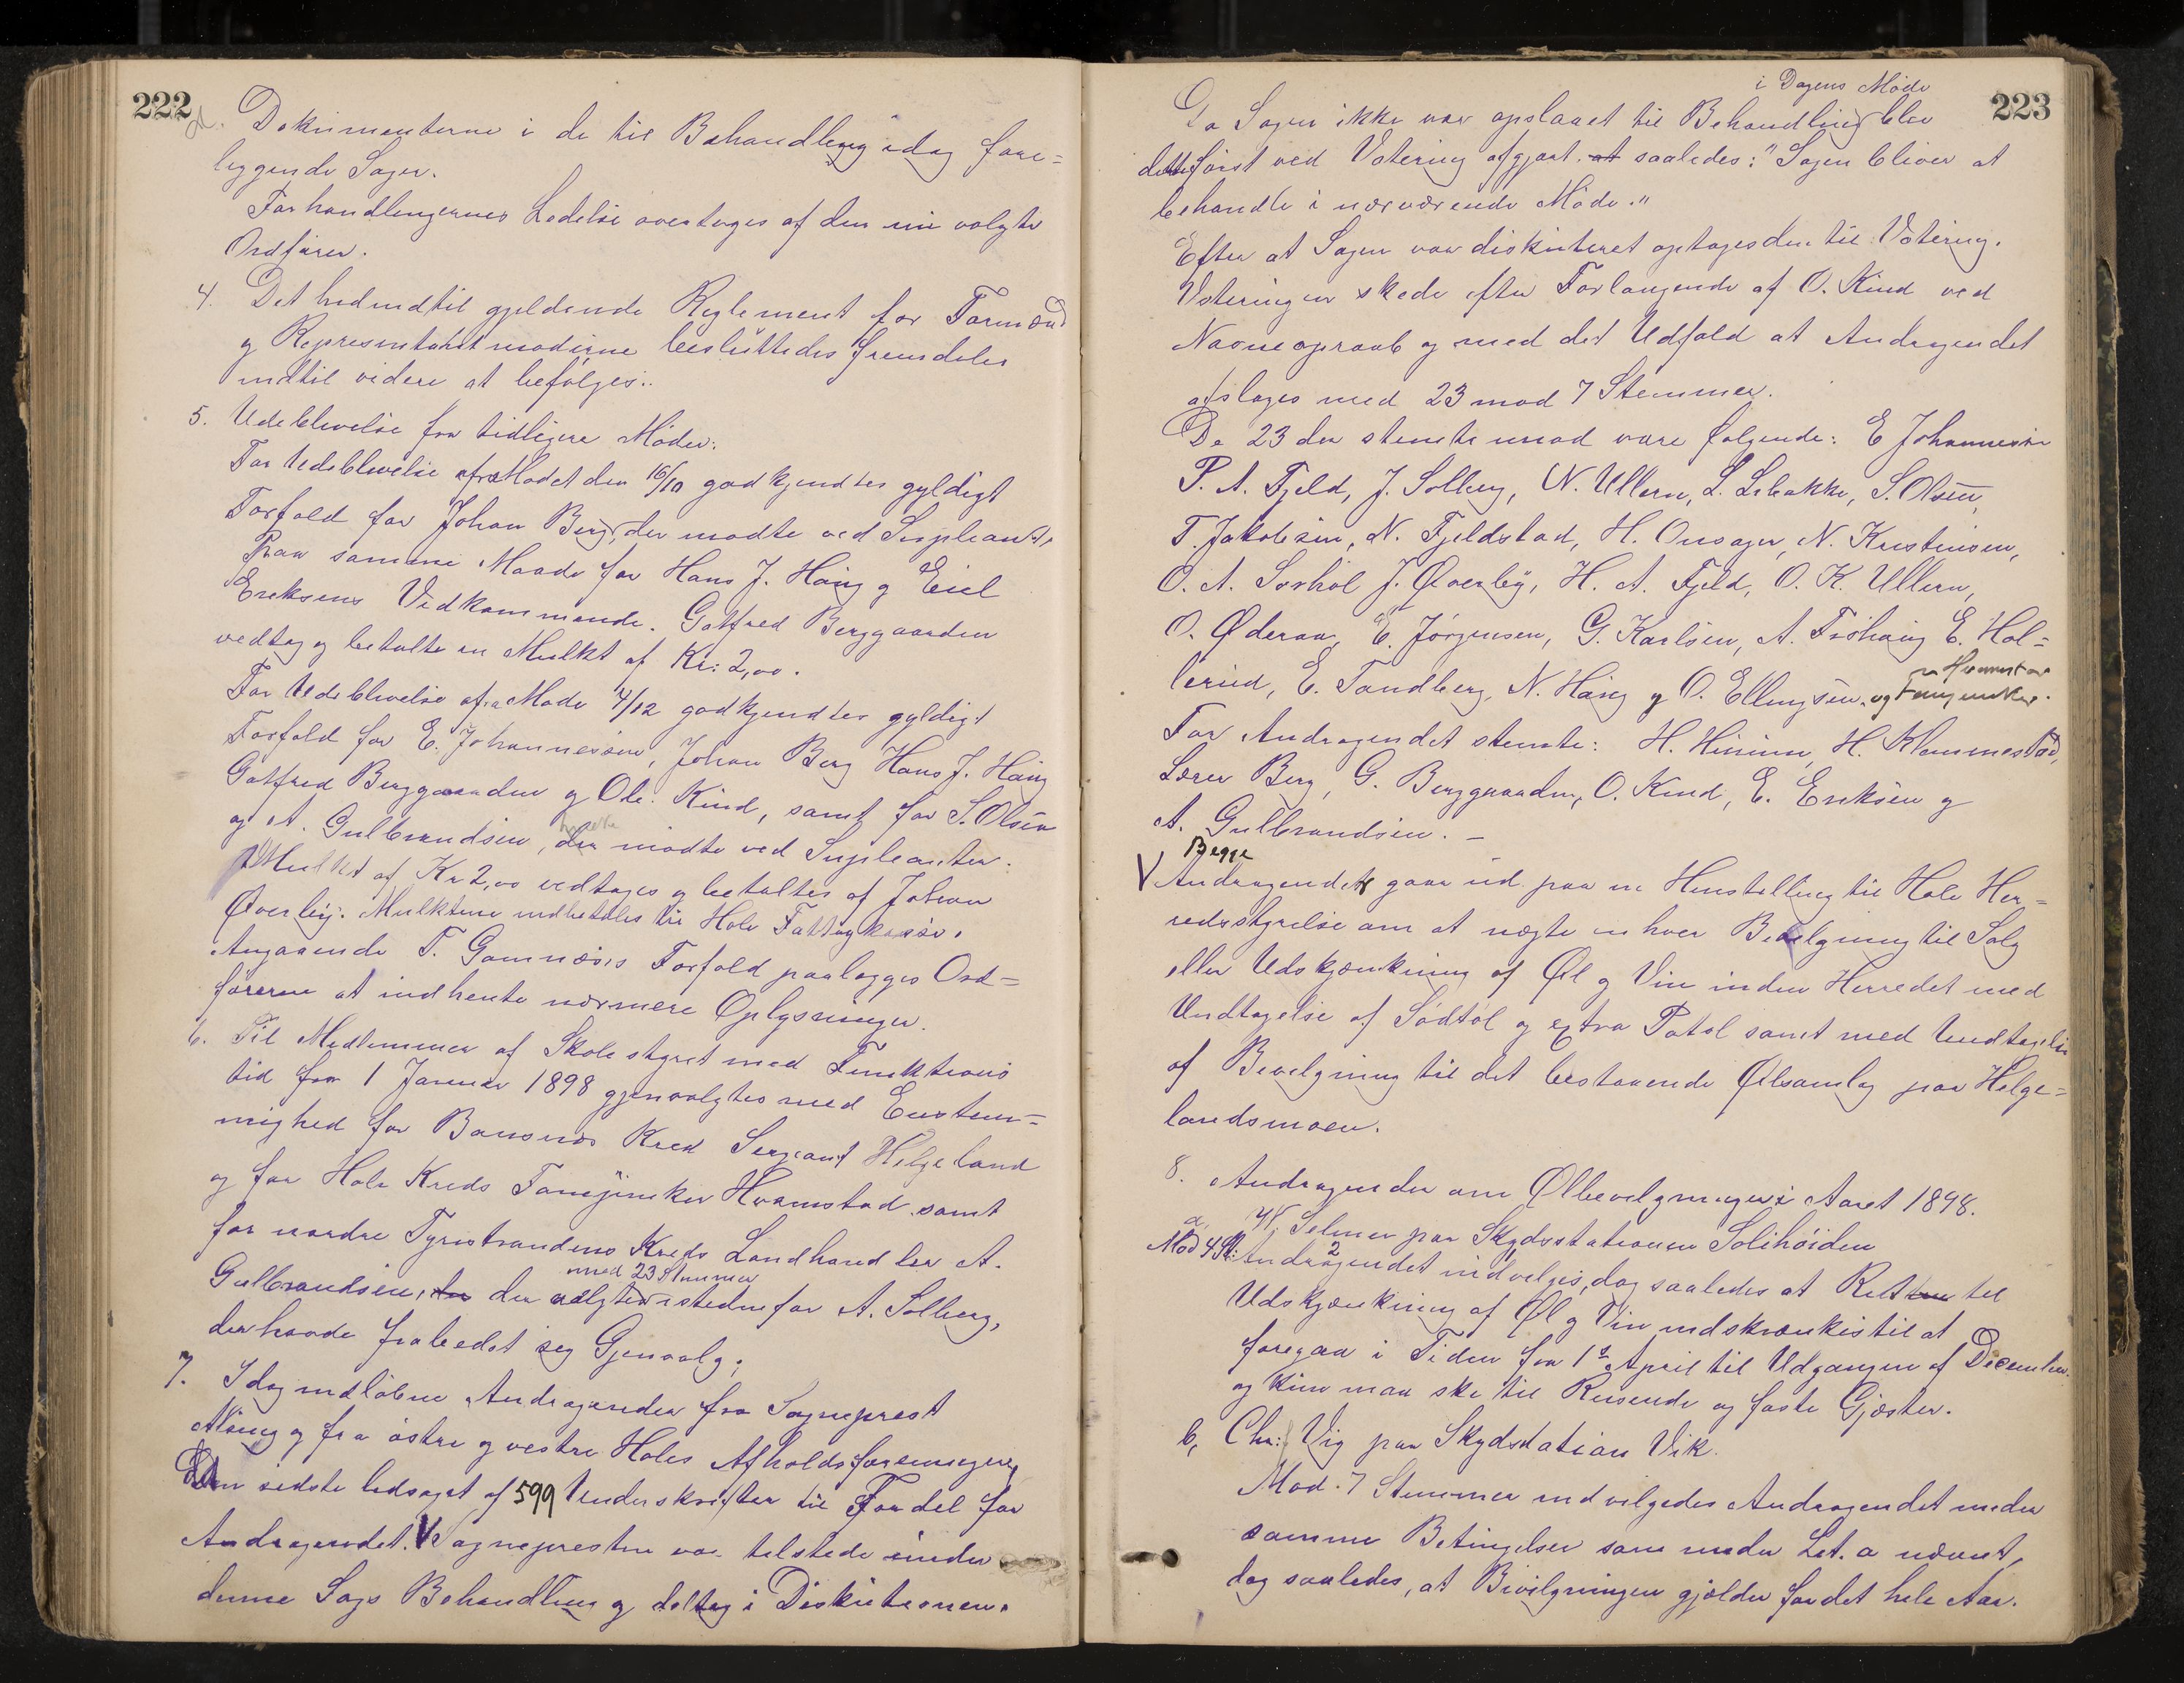 222
Dokumenterne i de til Behandling idag fore=
liggende Sager.
Forhandlingernes Ledelse overtoges af den ny valgte
Ordfører.
4. Det hidindtil gjeldende Reglement for Formænd
og Repræsentantmøderne besluttedes fremdeles
indtil videre at befølges.
5. Udeblivelse fra tidligere Møder.
For Udeblivelse fra Mødet den 16/10 godkjendtes gyldigt
Forfald for Johan Berg, der mødte ved Supleant.
Paa samme Maade for Hans J. Haug og Eiel
Eriksens Vidkommende. Gotfred Berggaarden
vedtog og betalte en Mulkt af Kr: 2,00.
For Udeblivelse fra Møde 4/12 godkjendtes gyldigt
Forfald for E. Johannesen, Johan Berg Hans J. Haug
Gotfred Berggaarden og Ole Kind, samt for S. Olsen
og A. Gulbrandsen, der mødte ved Supleanter.
Mulkt af Kr 2,00 vedtoges og betaltes af Johan
Øverby. Mulkterne indbetales til Hole Fattigkasse.
Angaaende T. Gomnæs's Forfald paalægges Ord=
føreren at indhente nærmere Oplysninger.
6. Til Medlemmer af Skolestyret med Funktions
tid fra 1 Januar 1898 gjenvalgtes med Enstem=
mighed for Bønsnes Kred Sergeant Helgeland
og for Hole Kreds Tømmerinker Hvamstad samt
for nordre Tyristrandens Kreds Landhandler A.
med 23 Stemmer
Gulbrandsen, der valgtes istedenfor A. Solberg,
der havde frabedet sig Gjenvalg.
7. Idag indløbne Andragender fra Sogneprest
Alsing og fra østre og vestre Holes Afholdsforeninger,
Den sidste ledsaget af 599 Underskrifter til Fordel for
Andragendet. V Sognepresten var tilstede under
denne Sags Behandling og deltog i Diskutionen.
223
i Dagens Møde
Da Sagen ikke var opslaaet til Behandling blev
dette først ved Votering afgjort at saaledes: "Sagen bliver at
behandle i nærværende Møde."
Efter at Sagen var diskuteret optoges den til Votering.
Voteringen skede efter Forlangende af O. Kind ved
Navneopraab og med det Udfald at Andragendet
afsloges med 23 mod 7 Stemmer.
De 23 der stemte imod vare følgende: E Johannesen
P. A. Fjeld, J. Solberg, N. Ullern, L. Libakke, S. Olsen,
T. Jakobsen, N. Fjeldstad, H. Onsager, N. Kristensen,
O. A. Sørhøl J. Øverby, H. A. Fjeld, O. K. Ullern,
O. Øderaa, E. Jørgensen, G. Karlsen, A. Frøhaug E. Hol=
lerud, E. Tandberg, N. Haug og O. Ellingsen. og
For Andragendet stemte: H. Hurum, H. Klemmestad,
Lærer Berg, G. Berggaarden, O. Kind, E. Eriksen og
A. Gulbrandsen. —
Begge
V Andragender gaar ud paa en Henstilling til Hole Her=
redsstyrelse om at nægte enhver Bevilgning til Salg
eller Udskjænkning af Øl og Vin inden Herredet med
Undtagelse af Sødtøl og extra Patøl samt med Undtagelse
af Bevilgning til det bestaaende Ølsamlag paa Helge=
landsmoen.
8. Andragender om Ølbevilgninger i Aaret 1898.
a. H. Selmer paa Skydsstationen Solihøiden
Mod 4 St: 2 Andragendet indvilges, dog saaledes at Retten til
Udskjænkning af Øl og Vin indskrænkes til at
foregaa i Tiden fra 1ste April til Udgangen af December
og kun maa ske til Reisende og faste Gjæster.
b, Chr: Vig paa Skydsstation Vik.
Mod 7 Stemmer indvilgedes Andragendet under
samme Betingelser som under Lit. a nævnt,
dog saaledes, at Bevilgningen gjælder for det hele Aar.